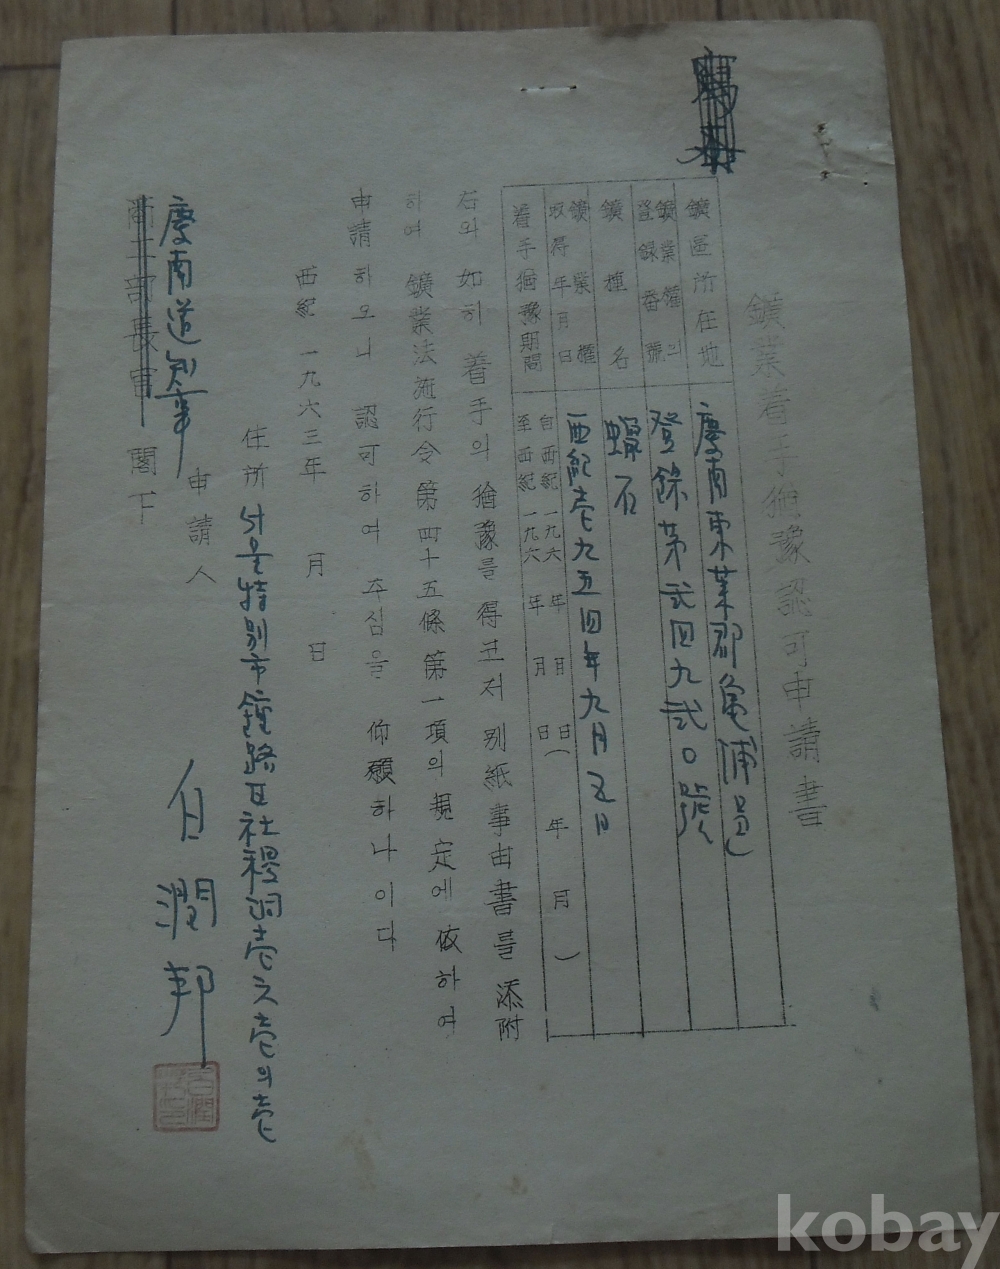 鑛業着手猶豫認可申請書
鑛區所在地 慶南東萊郡龜浦邑
鑛業權의 登錄番號 登錄第弍四九弍〇號
鑛種名 蠟石
鑛業權 取得年月日 西紀壱九五四年九月五日
着手猶豫期間 自西紀一九六 年 月 日( 年 月)
至西紀一九六 年 月 日
右와 如히 着手의 猶豫를 得코저 別紙事由書를 添附
하여 鑛業法施行令第四十五條第一項의 規定에 依하여
申請하오니 認可하여 주심을 仰願하나이다
西紀 一九六三年 月 日
住所 서울特別市鍾路區社稷洞壱 壱의壱
申請人 白潤邦
慶南道知事
商工部長官 閣下
kobay